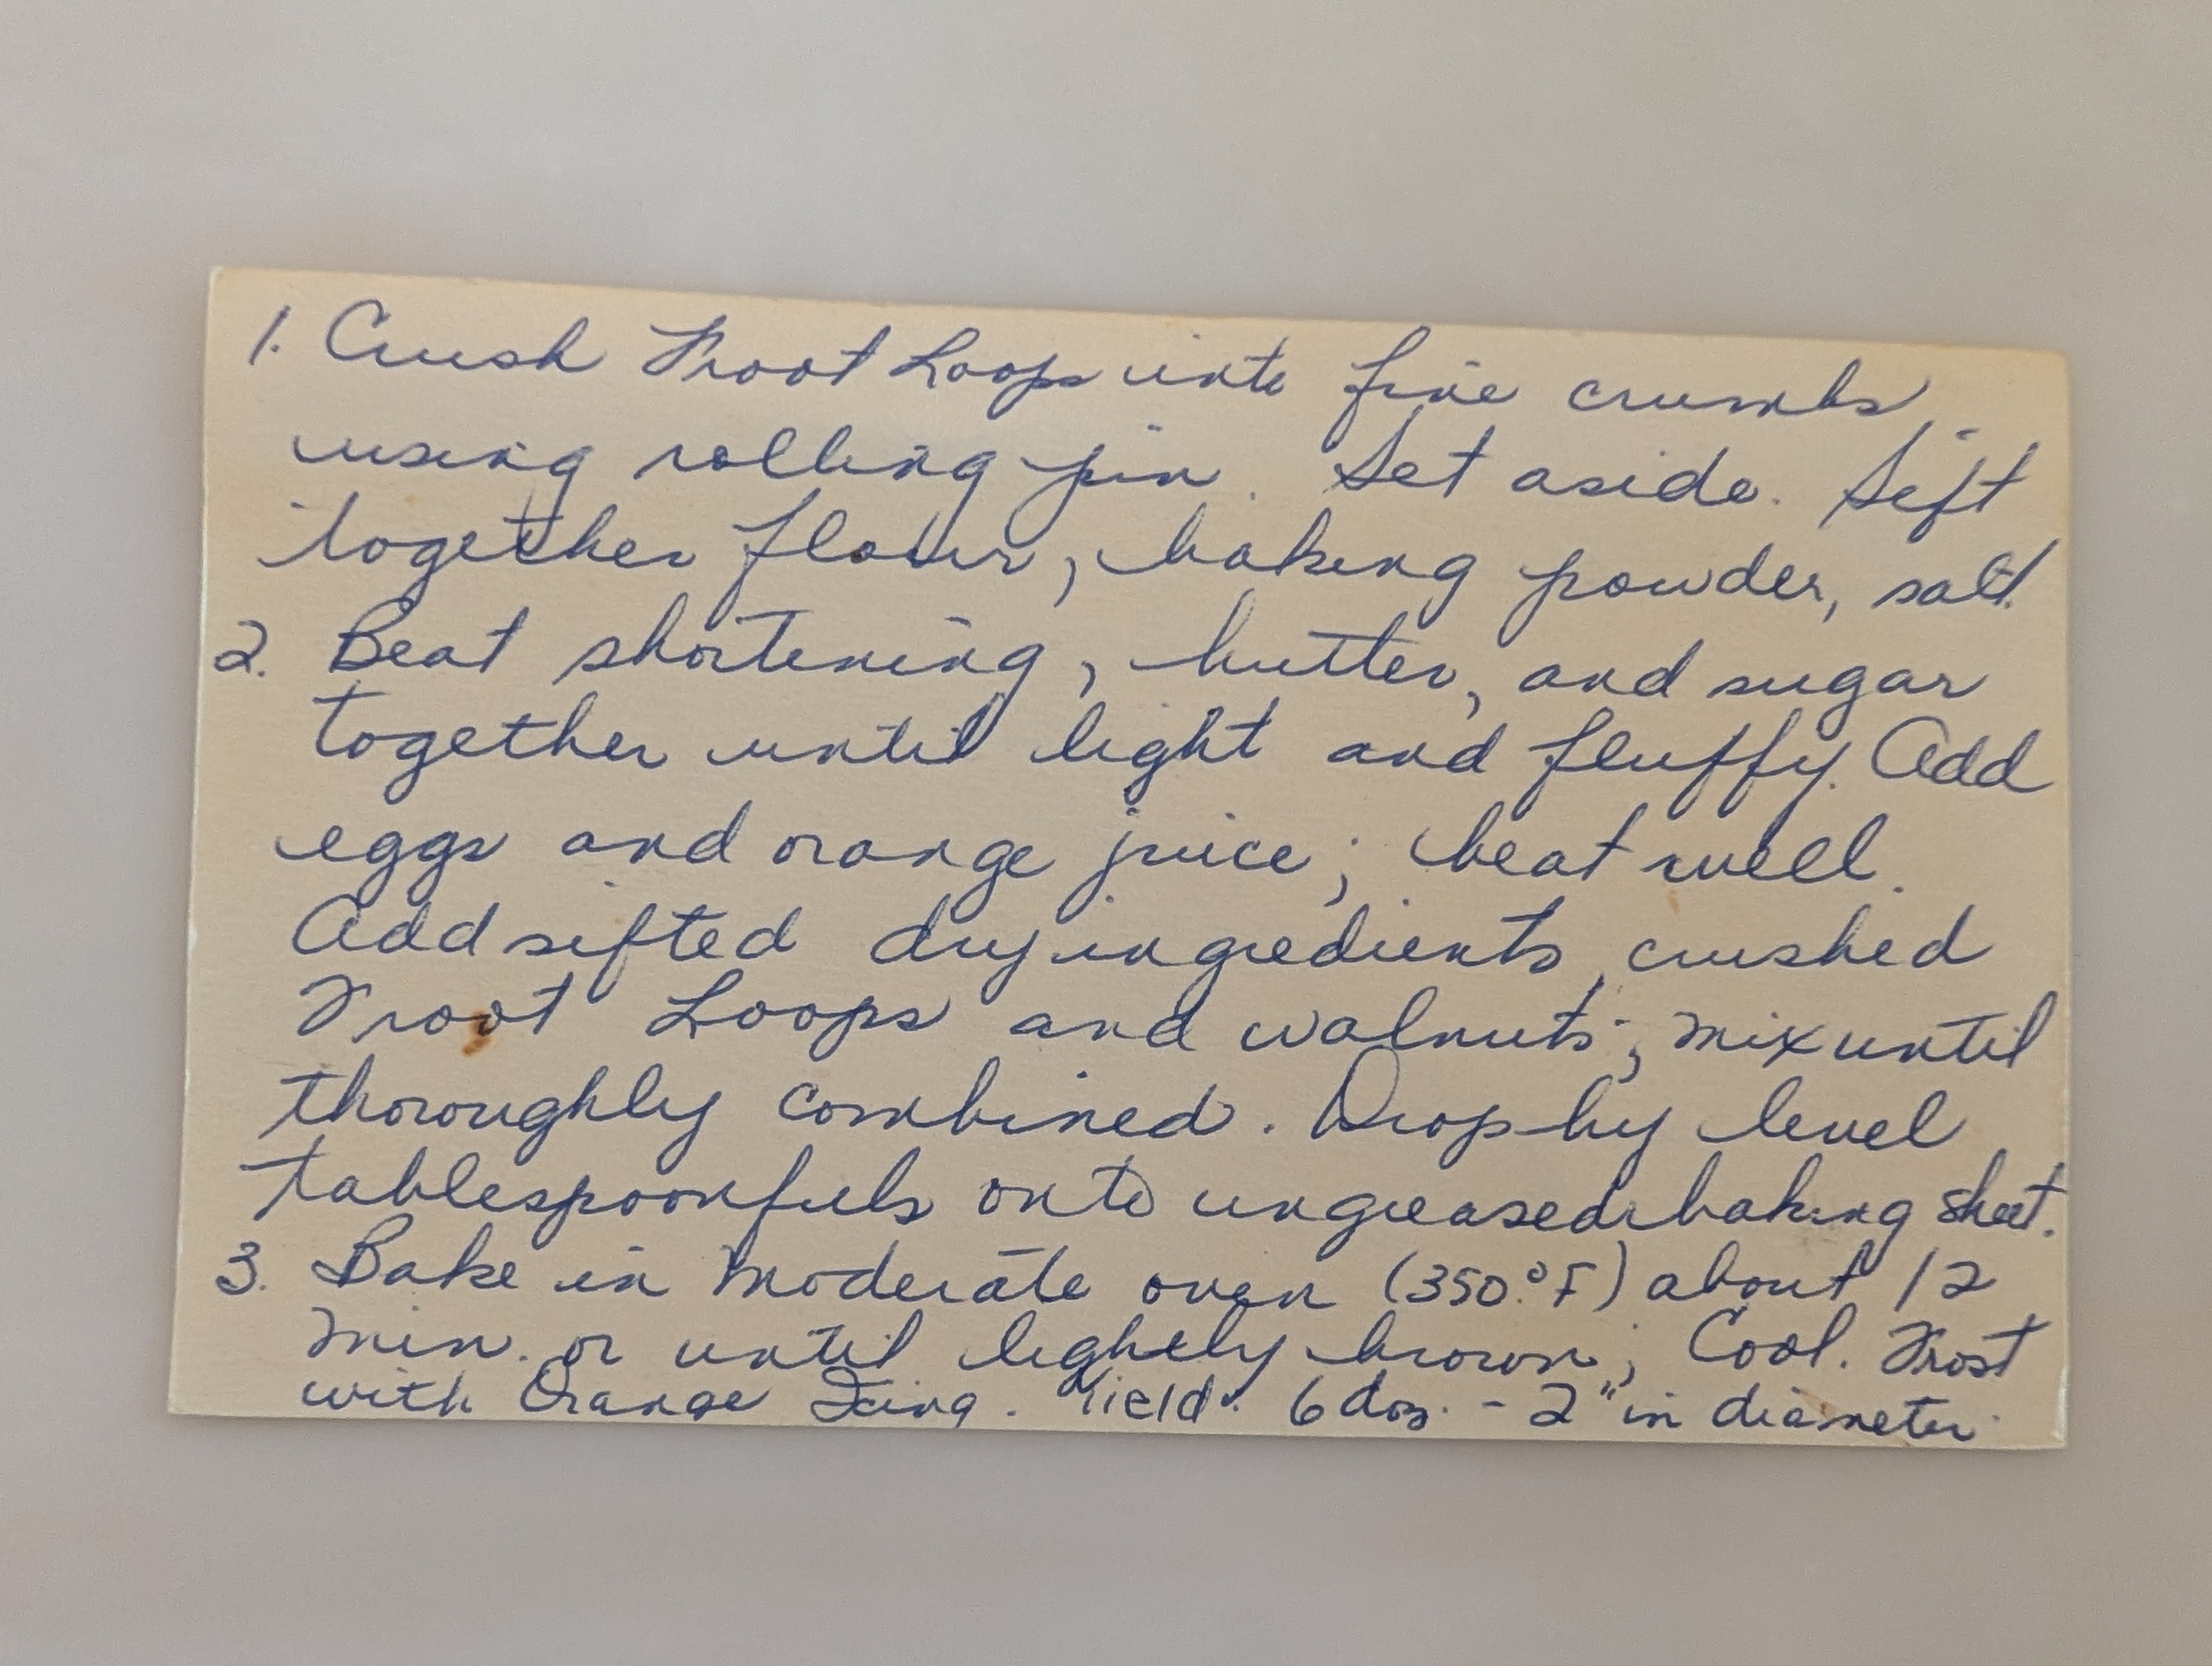 1. Crush Froot Loops into fine crumbs,
using rolling pin. Set aside. Sift
together flour, baking powder, salt.
2. Beat shortening, butter, and sugar
together until light and fluffy. Add
eggs and orange juice; beat well.
Add sifted dry ingredients, crushed
Froot Loops and walnuts; mix until
thoroughly combined. Drop by level
tablespoonfuls onto ungreased baking sheet.
3. Bake in moderate oven (350.°F) about 12
min. or until lightly brown; Cool. Frost
with Orange Icing. Yield: 6 doz. - 2" in diameter